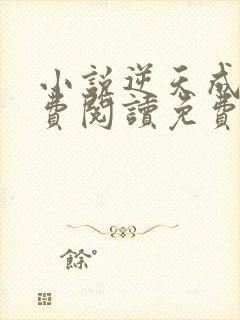 小說逆天成
費閱讀免費
餘